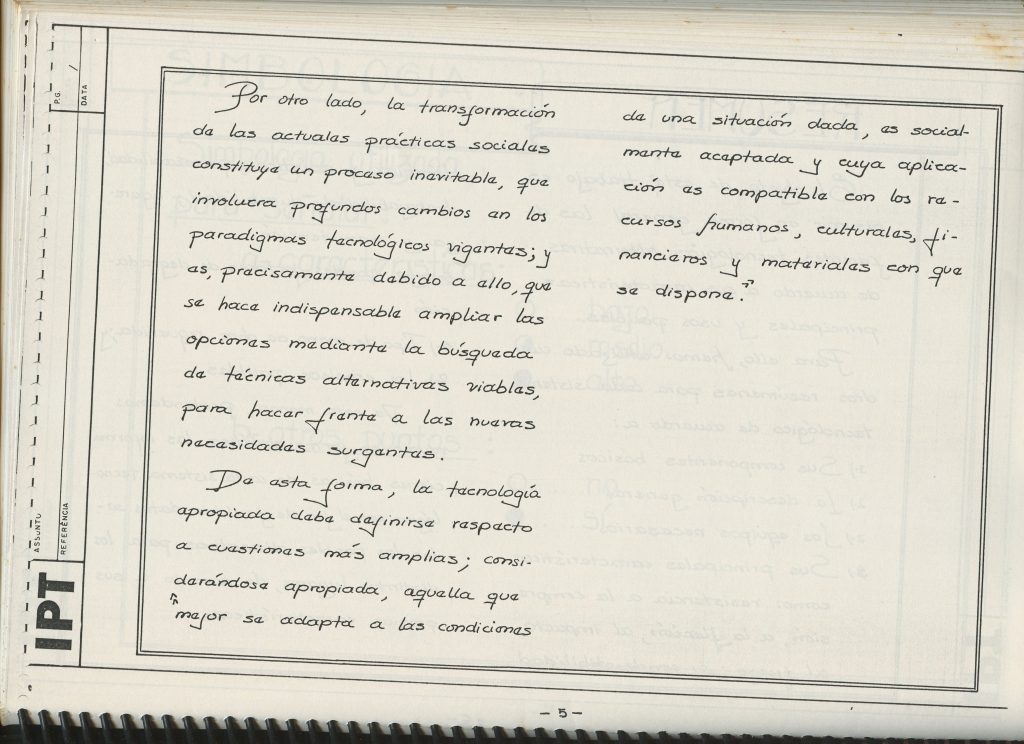 PG.
/
DATA
ASSUNTO
REFERÊNCIA
IPT
Por otro lado, la transformación
de las actuales prácticas sociales
constituye un proceso inevitable, que
involucra profundos cambios en los
paradigmas tecnológicos vigentes; y
es, precisamente debido a ello, que
se hace indispensable ampliar las
opciones mediante la búsqueda
de técnicas alternativas viables,
para hacer frente a las nuevas
necesidades surgentes.
De esta forma, la tecnología
apropiada debe definirse respecto
a cuestiones más amplias; consi-
derándose apropiada, aquella que
"mejor se adapta a las condiciones
de una situación dada, es social-
mente aceptada y cuya aplica-
ción es compatible con los re-
cursos humanos, culturales, fi-
nancieros y materiales con que
se dispone."
- 5 -